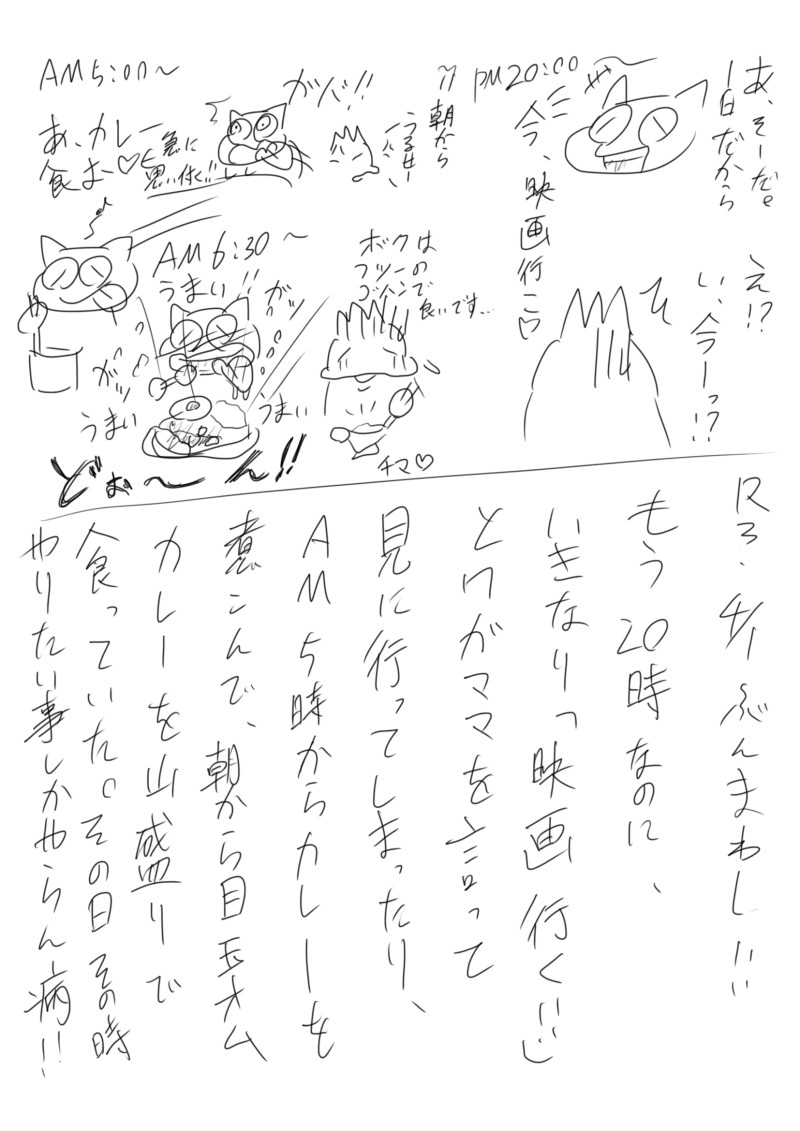 あ、そーだ。
1日だから
PM20:00〜
今、映画行こ♡
え!?
い、今ーっ!?
AM5:00〜
ガバ!!
あ、カレー
食お♡
と急に
思い付く!!
朝から
うるせー
AM6:30〜
うまい!!
ガッ
ガッ
うまい
うまい
どぉ〜ん!!
ボクは
フツーの
ゴハンで
良いです…
チマ♡
R3.4/1ぶんまわし!!
もう20時なのに、
いきなり「映画行く!!」
とワガママを言って
見に行ってしまったり、
AM5時からカレーを
煮こんで、朝から目玉オム
カレーを山盛りで
食っていた。その日その時
やりたい事しかやらん病!!